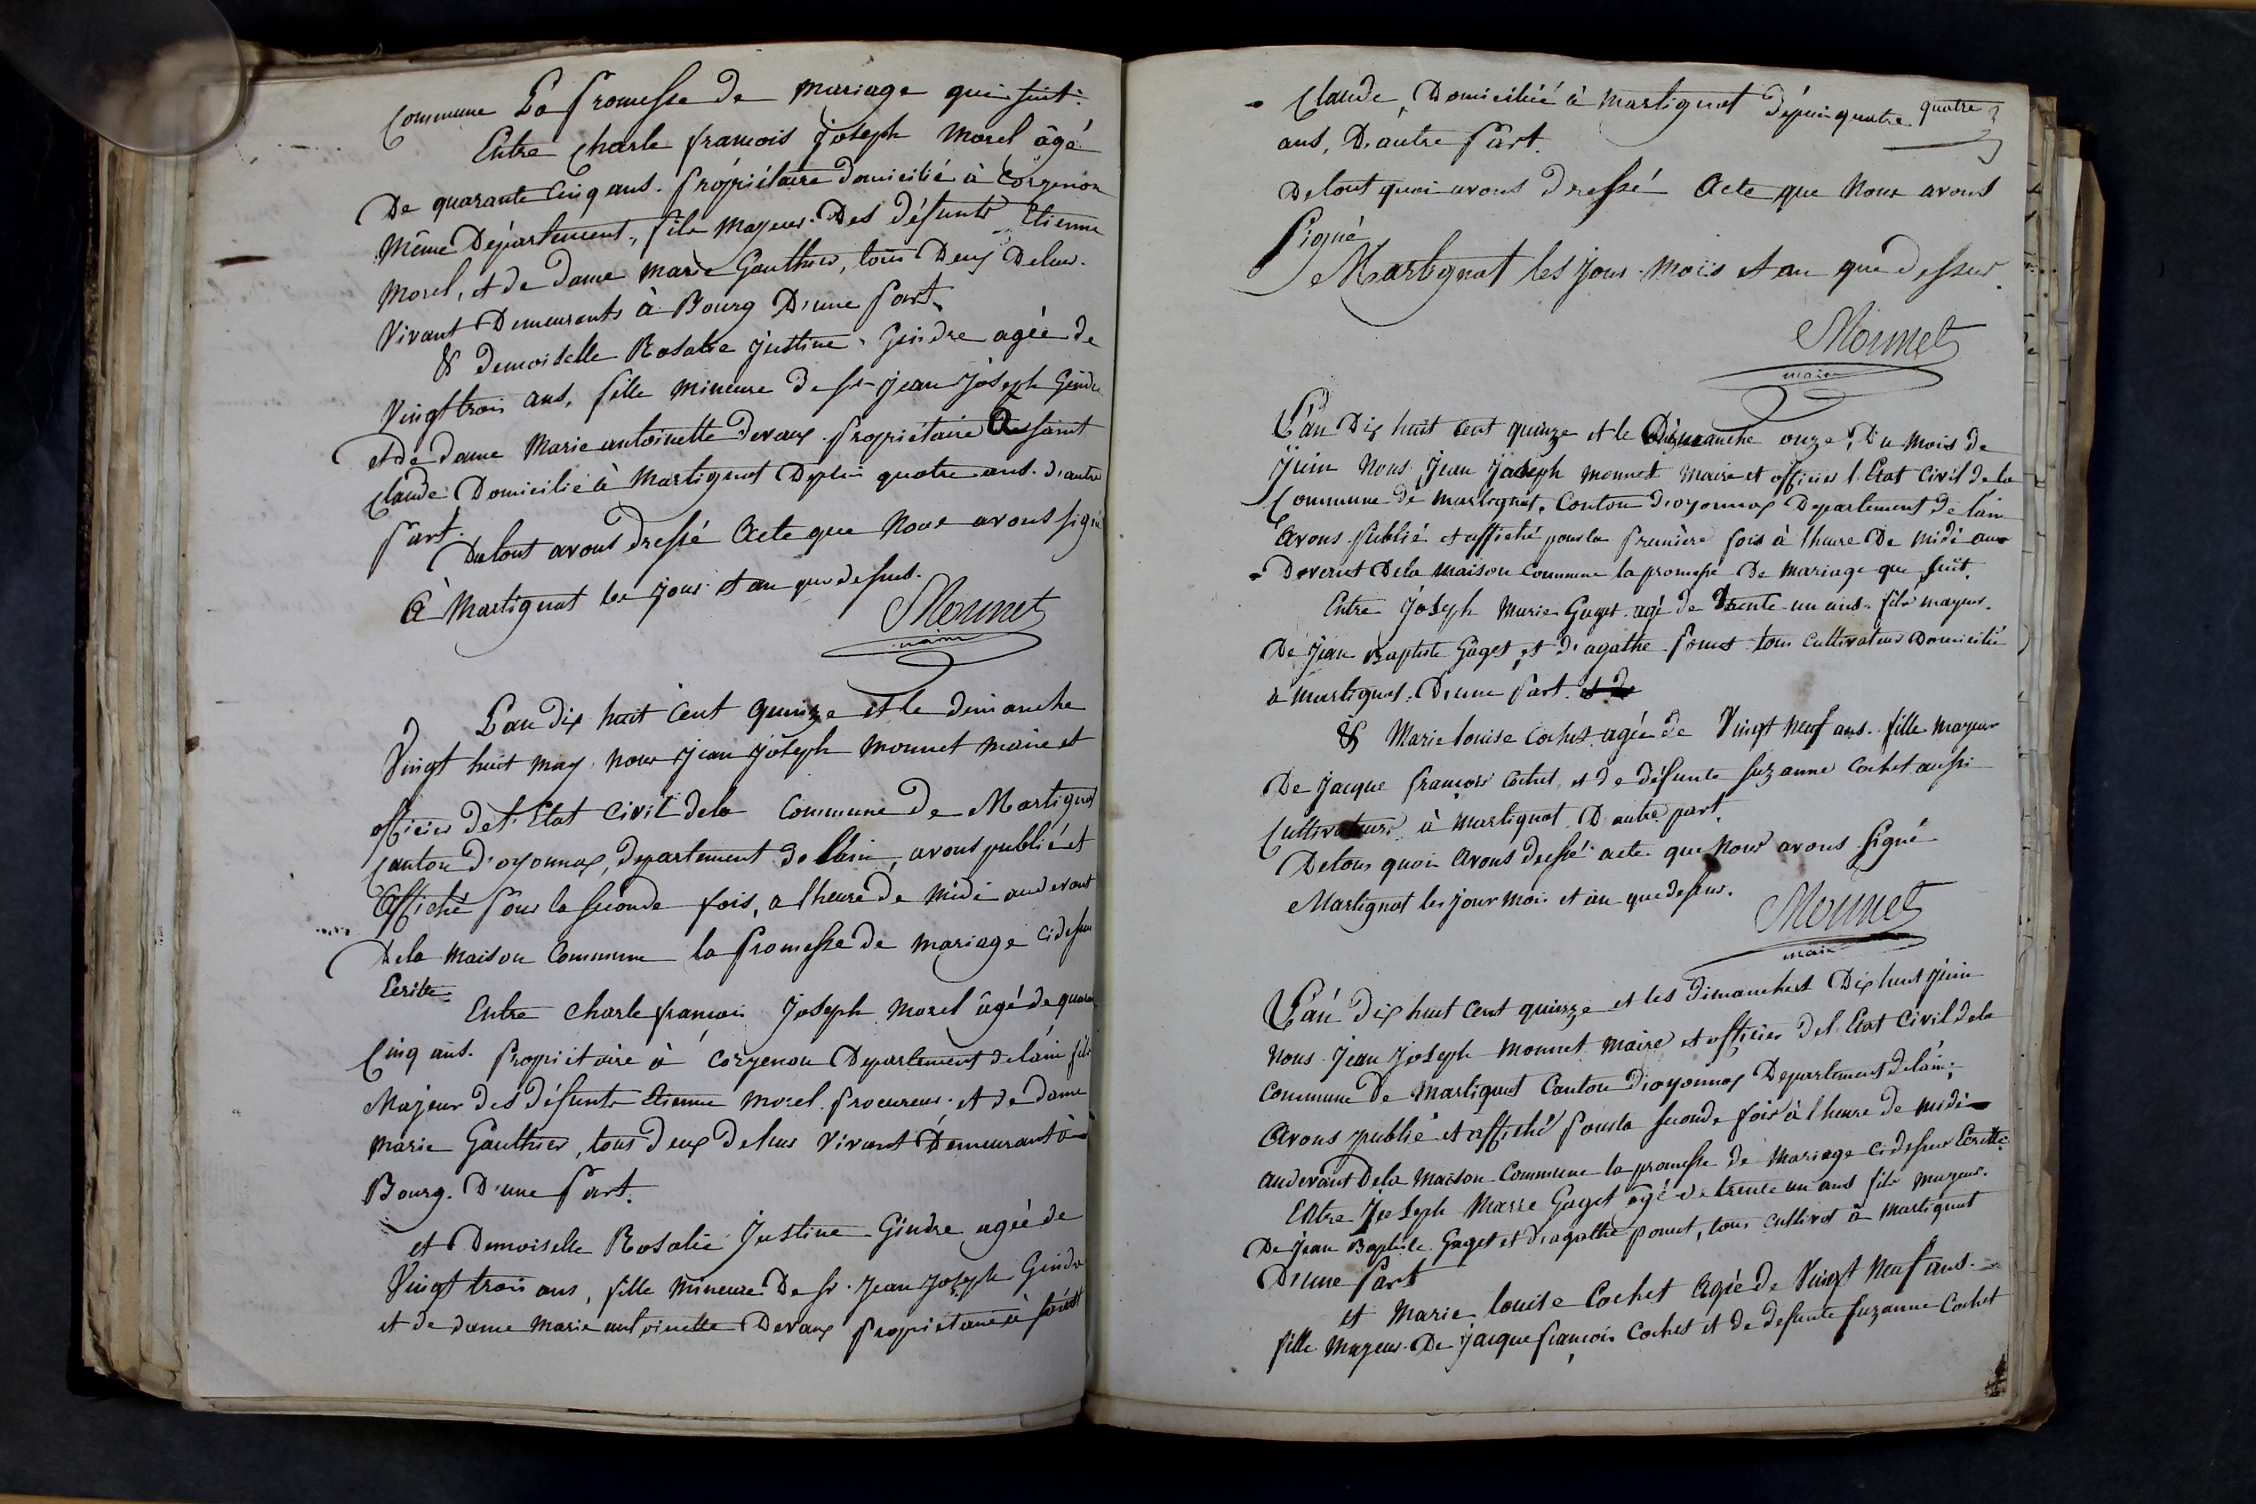 Commune La promesse de mariage qui suit.
Entre charle francois joseph Morel âgé
De quarante cinq ans. propriétaire domicilié à Corgenon
Même Département, fils majeur. Des défunts Etienne
Morel, et de dame marie Gauthier, tous Deux De leur.
Vivant Demeurants à Bourg D'une part.
& demoiselle Rosalie justine Gindre agée de
Vingt trois ans, fille mineure de sr jean joseph Gindre
et de dame Marie antoinette devaux propriétaire De saint
Claude Domicilié à Martignat Depuis quatre ans. d'autre
part.
Du tout avons dressé Acte que Nous avons signé
à Martignat les jour et an que dessus.
Monnet
maire
L'an dix huit cent quinze et le dimanche
Vingt huit may nous jean joseph monnet maire et
officier de l'Etat civil de la Commune de Martignat
Canton d'oyonnax, departement de l'ain, avons publié et
Affiché pour la seconde fois, a l'heure de midi au devant
De la maison Commune la promesse de mariage ci dessus
Ecrite.
Entre charle francois joseph Morel âgé de quarante
Cinq ans. propriétaire à Corgenon Departement de l'ain fils
Majeur des défunts Etienne Morel procureur. et de dame
marie Gauthier, tous deux de leur vivant Demeurant à
Bourg. D'une part.
et Demoiselle Rosalie Justine Gindre agée de
Vingt trois ans, fille mineure De sr. jean joseph Gindre
et de dame marie antoinette Devaux propriétaire à saint
Claude, Domiciliée à Martignat dépuis quatre quatre
ans, D'autre part.
De tout quoi avons dressé Acte que Nous avons
signé
Martignat les jour. mois et an que dessus.
Monnet
maire
L'an Dix huit cent quinze et le Dimanche onze, Du mois de
Juin Nous Jean Joseph monnet maire et officier l'Etat civil de la
Commune de martignat, Canton d'oyonnax Departement de l'ain
avons publié et affiché pour la premiere fois à l'heure De midi au
Devent De la maison Commune la promesse De mariage qui suit.
Entre Joseph Marie Gaget agé de trente un ans. fils mayeur.
De Jean Baptiste Gaget, et d'agathe ponet tous cultivateur Domicilié
a martignat. D'une part. et de
& Marie louise Cochet agée de Vingt neuf ans. fille mayeur
De jacque francois Cochet, et de défunte suzanne Cochet aussi
Cultivateurs à martignat D'autre part.
De tous quoi avons dressé acte que Nous avons signé
Martignat les jour mois et an que dessus.
Monnet
maire
L'an dix huit cent quinze et les dimanches Dix huit juin
Nous Jean Joseph monnet maire et officier de l'Etat civil de la
commune De Martignat Canton d'oyonnax Departement de l'ain,
Avons publié et affiché pour la seconde fois à l'heure de midi
au devant De la maison Commune la promesse de mariage ci dessus Ecritte.
Entre Joseph Marie Gaget agé de trente un ans fils mayeur.
De Jean Baptiste Gaget et d'agathe ponet, tous cultivat à Martignat
D'une part
et Marie louise Cochet agée de Vingt neuf ans.
fille mayeur. De jacque francois Cochet et de defunte suzanne Cochet